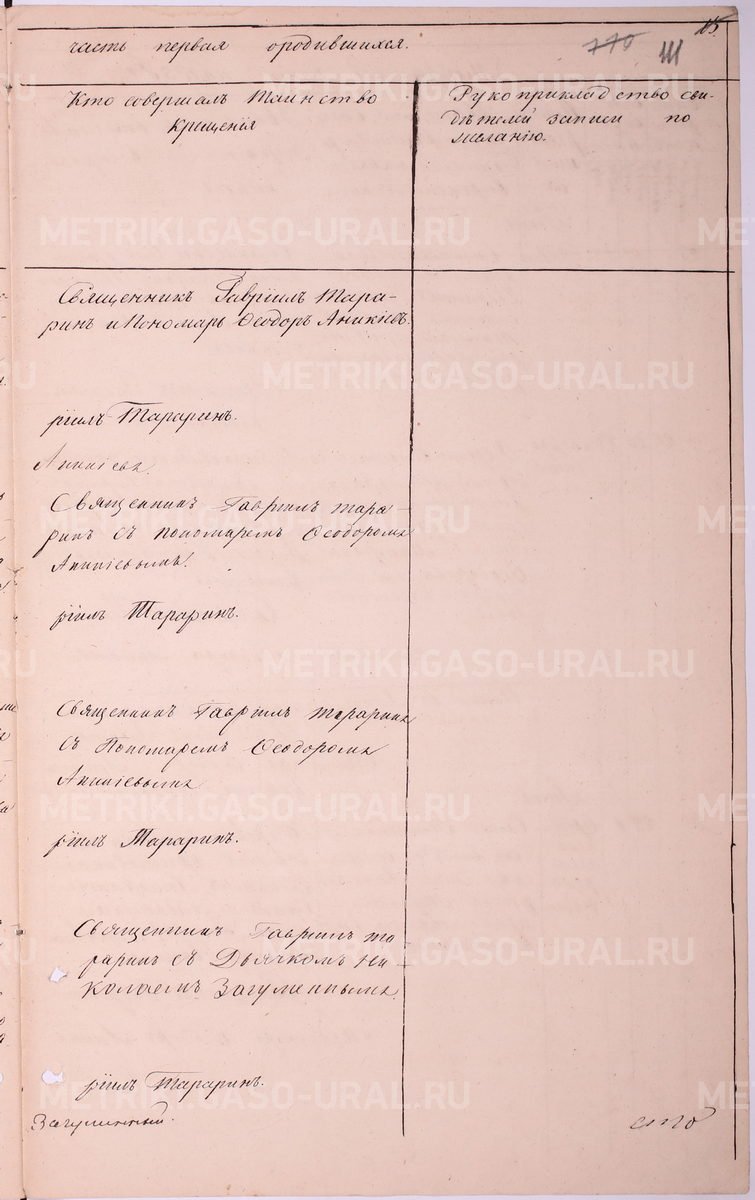 15.
часть первая ородившихся.
770 111
Кто совершалъ Таинство
Крещенія
Рукоприкладство сви-
дѣтелей записи по
желанію.
Священникъ Гавріилъ Тара-
ринъ и Пономарь Ѳеодоръ Аникіевъ.
ріилъ Тараринъ.
Аникіевъ.
Священникъ Гавріилъ Тара-
ринъ съ пономаремъ Ѳеодоромъ
Аникіевымъ.
ріилъ Тараринъ.
Священникъ Гавріилъ Тараринъ
съ Пономаремъ Ѳеодоромъ
Аникіевымъ
ріилъ Тараринъ.
Священникъ Гавріилъ Та
раринъ съ Дьячкомъ Ни-
колаемъ Загуменнымъ.
ріилъ Тараринъ.
Загуменный.
METRIKI.GASO-URAL.RU